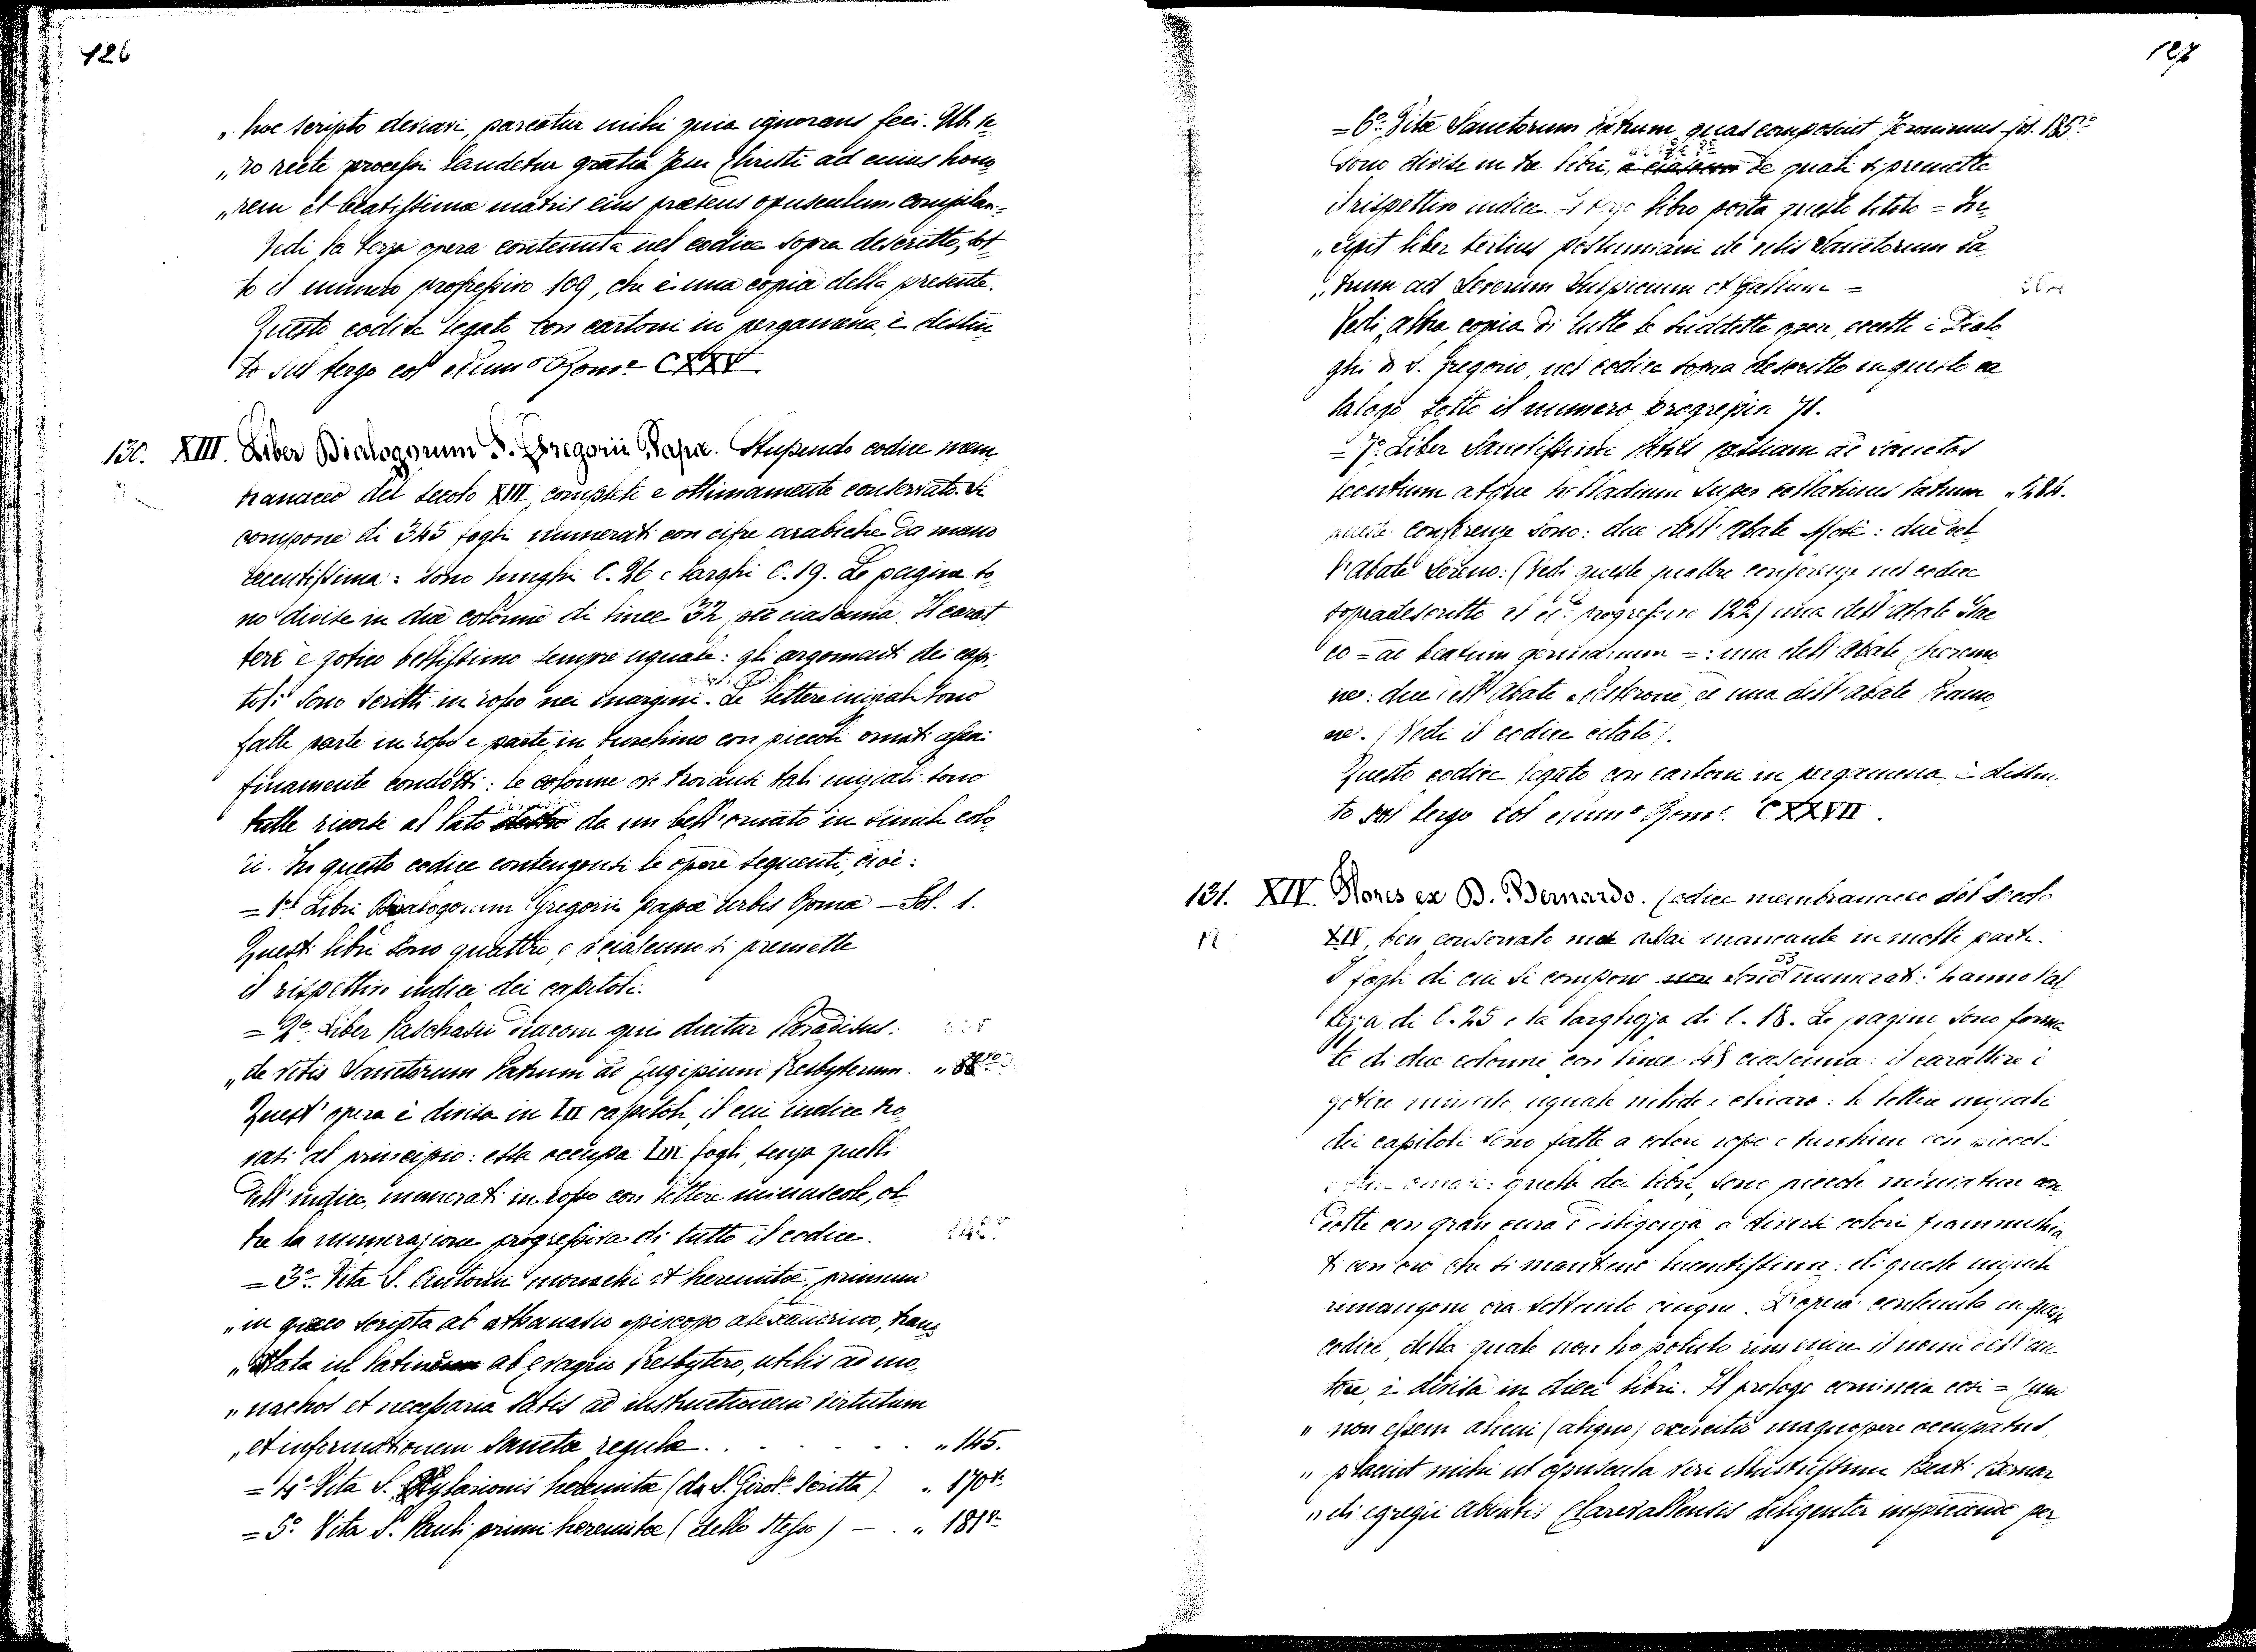 126
„ hoc scripto deviavi, parcatur mihi quia ignorans feci. Ubi ve¬
„ ro recte processi laudetur gratia Jesu Christi ad cuius hono¬
„ rem et beatissimæ matris eius præsens opusculum compilavi =
Vedi la terza opera contenuta nel codice sopra descritto, sot¬
to il numero progressivo 109, che è una copia della presente.
Questo codice legato con cartoni in pergamena, è distin¬
to sul tergo col num.o Rom.o CXXV
130. XIII. Liber Dialogorum S. Gregorii Papæ. Stupendo codice mem¬
branaceo del secolo XIII, completo e ottimamente conservato. Si
compone di 345 fogli numerati con cifre arabiche da mano
recentissima: sono lunghi C. 26 e larghi C. 19. Le pagine so¬
no divise in due colonne di linee 32 per ciascuna. Il carat¬
tere è gotico bellissimo sempre uguale: gli argomenti dei capi¬
toli sono scritti in rosso nei margini. Le lettere iniziali sono
fatte parte in rosso e parte in turchino con piccoli ornati assai
finamente condotti: le colonne ove trovansi tali iniziali sono
tutte ricorse al lato da un bell'ornato in simile colo¬
ri. In questo codice contengonsi le opere seguenti, cioè:
= 1.o Libri Dialogorum Gregorii papæ urbis Romæ — Fol. 1.
Questi libri sono quattro e a ciascuno si premette
il rispettivo indice dei capitoli.
= 2.o Liber Paschasii diaconi qui dicitur Paradisus:
„ de vitis Sanctorum Patrum ad Eugipium Presbyterum. „ 88
Quest'opera è divisa in LII capitoli, il cui indice tro¬
vasi al principio: essa occupa LIII fogli, senza quelli
dell'indice, numerati in rosso con lettere minuscole, ol¬
tre la numerazione progressiva di tutto il codice.
= 3.o Vita S. Antonii monachi et heremitæ, primum
„ in græco scripta ab athanasio episcopo alexandrino, trans¬
„ lata in latinum ab Evagrio Presbytero, utilis ad mo¬
„ nachos et necessaria satis ad instructionem virtutum
„ et informationem sanctæ regulæ . . . „ 145.
= 4.o Vita S. Hylarionis heremitæ (da S. Girol.o scritta) „ 170
= 5.o Vita S. Pauli primi heremitæ (dello stesso) — . „ 181
127
= 6.o Vitæ Sanctorum Patrum quas composuit Jeronimus fol. 185
Sono divise in tre libri, de quali si premette
il rispettivo indice. Il terzo libro porta questo titolo = In¬
„ cipit liber tertius postumiani de vitis Sanctorum Pa¬
„ trum ad Severum Sulpicium et Gallum =
Vedi altra copia di tutte le suddette opere, eccetto i Dialo¬
ghi di S. Gregorio, nel codice sopra descritto in questo ca¬
talogo sotto il numero progressivo 71.
= 7.o Liber Sanctissimi Patris Cassiani ad sanctos
Leontium atque helladium super collationes Patrum „ 284.
queste conferenze sono: due dell'abate Mosè: due del¬
l'abate Sereno: (Vedi queste quattro conferenze nel codice
sopradescritto al n.o progressivo 122) una dell'abate Isac¬
co = ad beatum germanum =: una dell'abate Cheremo¬
ne: due dell'abate Nesterone, ed una dell'abate Piamo¬
ne. (Vedi il codice citato).
Questo codice legato con cartoni in pergamena è distin¬
to sul tergo col num.o Rom.o CXXVII.
131. XIV. Flores ex D. Bernardo. Codice membranaceo del secolo
XIV, ben conservato ma assai mancante in molte parti.
I fogli di cui si compone sono 53 numerati: hanno l'al¬
tezza di C. 25 e la larghezza di C. 18. Le pagine sono forma¬
te di due colonne con linee 45 ciascuna: il carattere è
gotico minuto, uguale nitido e chiaro: le lettere iniziali
dei capitoli sono fatte a colori rosso e turchino con piccoli
ornati: quelle dei libri, sono piccole miniature con¬
dotte con gran cura e diligenza a diversi colori frammischia¬
ti con oro che si mantiene lucentissimo: di queste iniziali
rimangono ora soltanto cinque. L'opera contenuta in questo
codice, della quale non ho potuto rinvenire il nome dell'au¬
tore, è divisa in dieci libri. Il prologo comincia così = Cum
„ non essem alicui (aliquo) exercitio magnopere occupatus,
„ placuit mihi ut opuscula viri illustrissimi Beati Bernar¬
„ di egregii abbatis Clarevallensis diligenter inspiciendo per¬